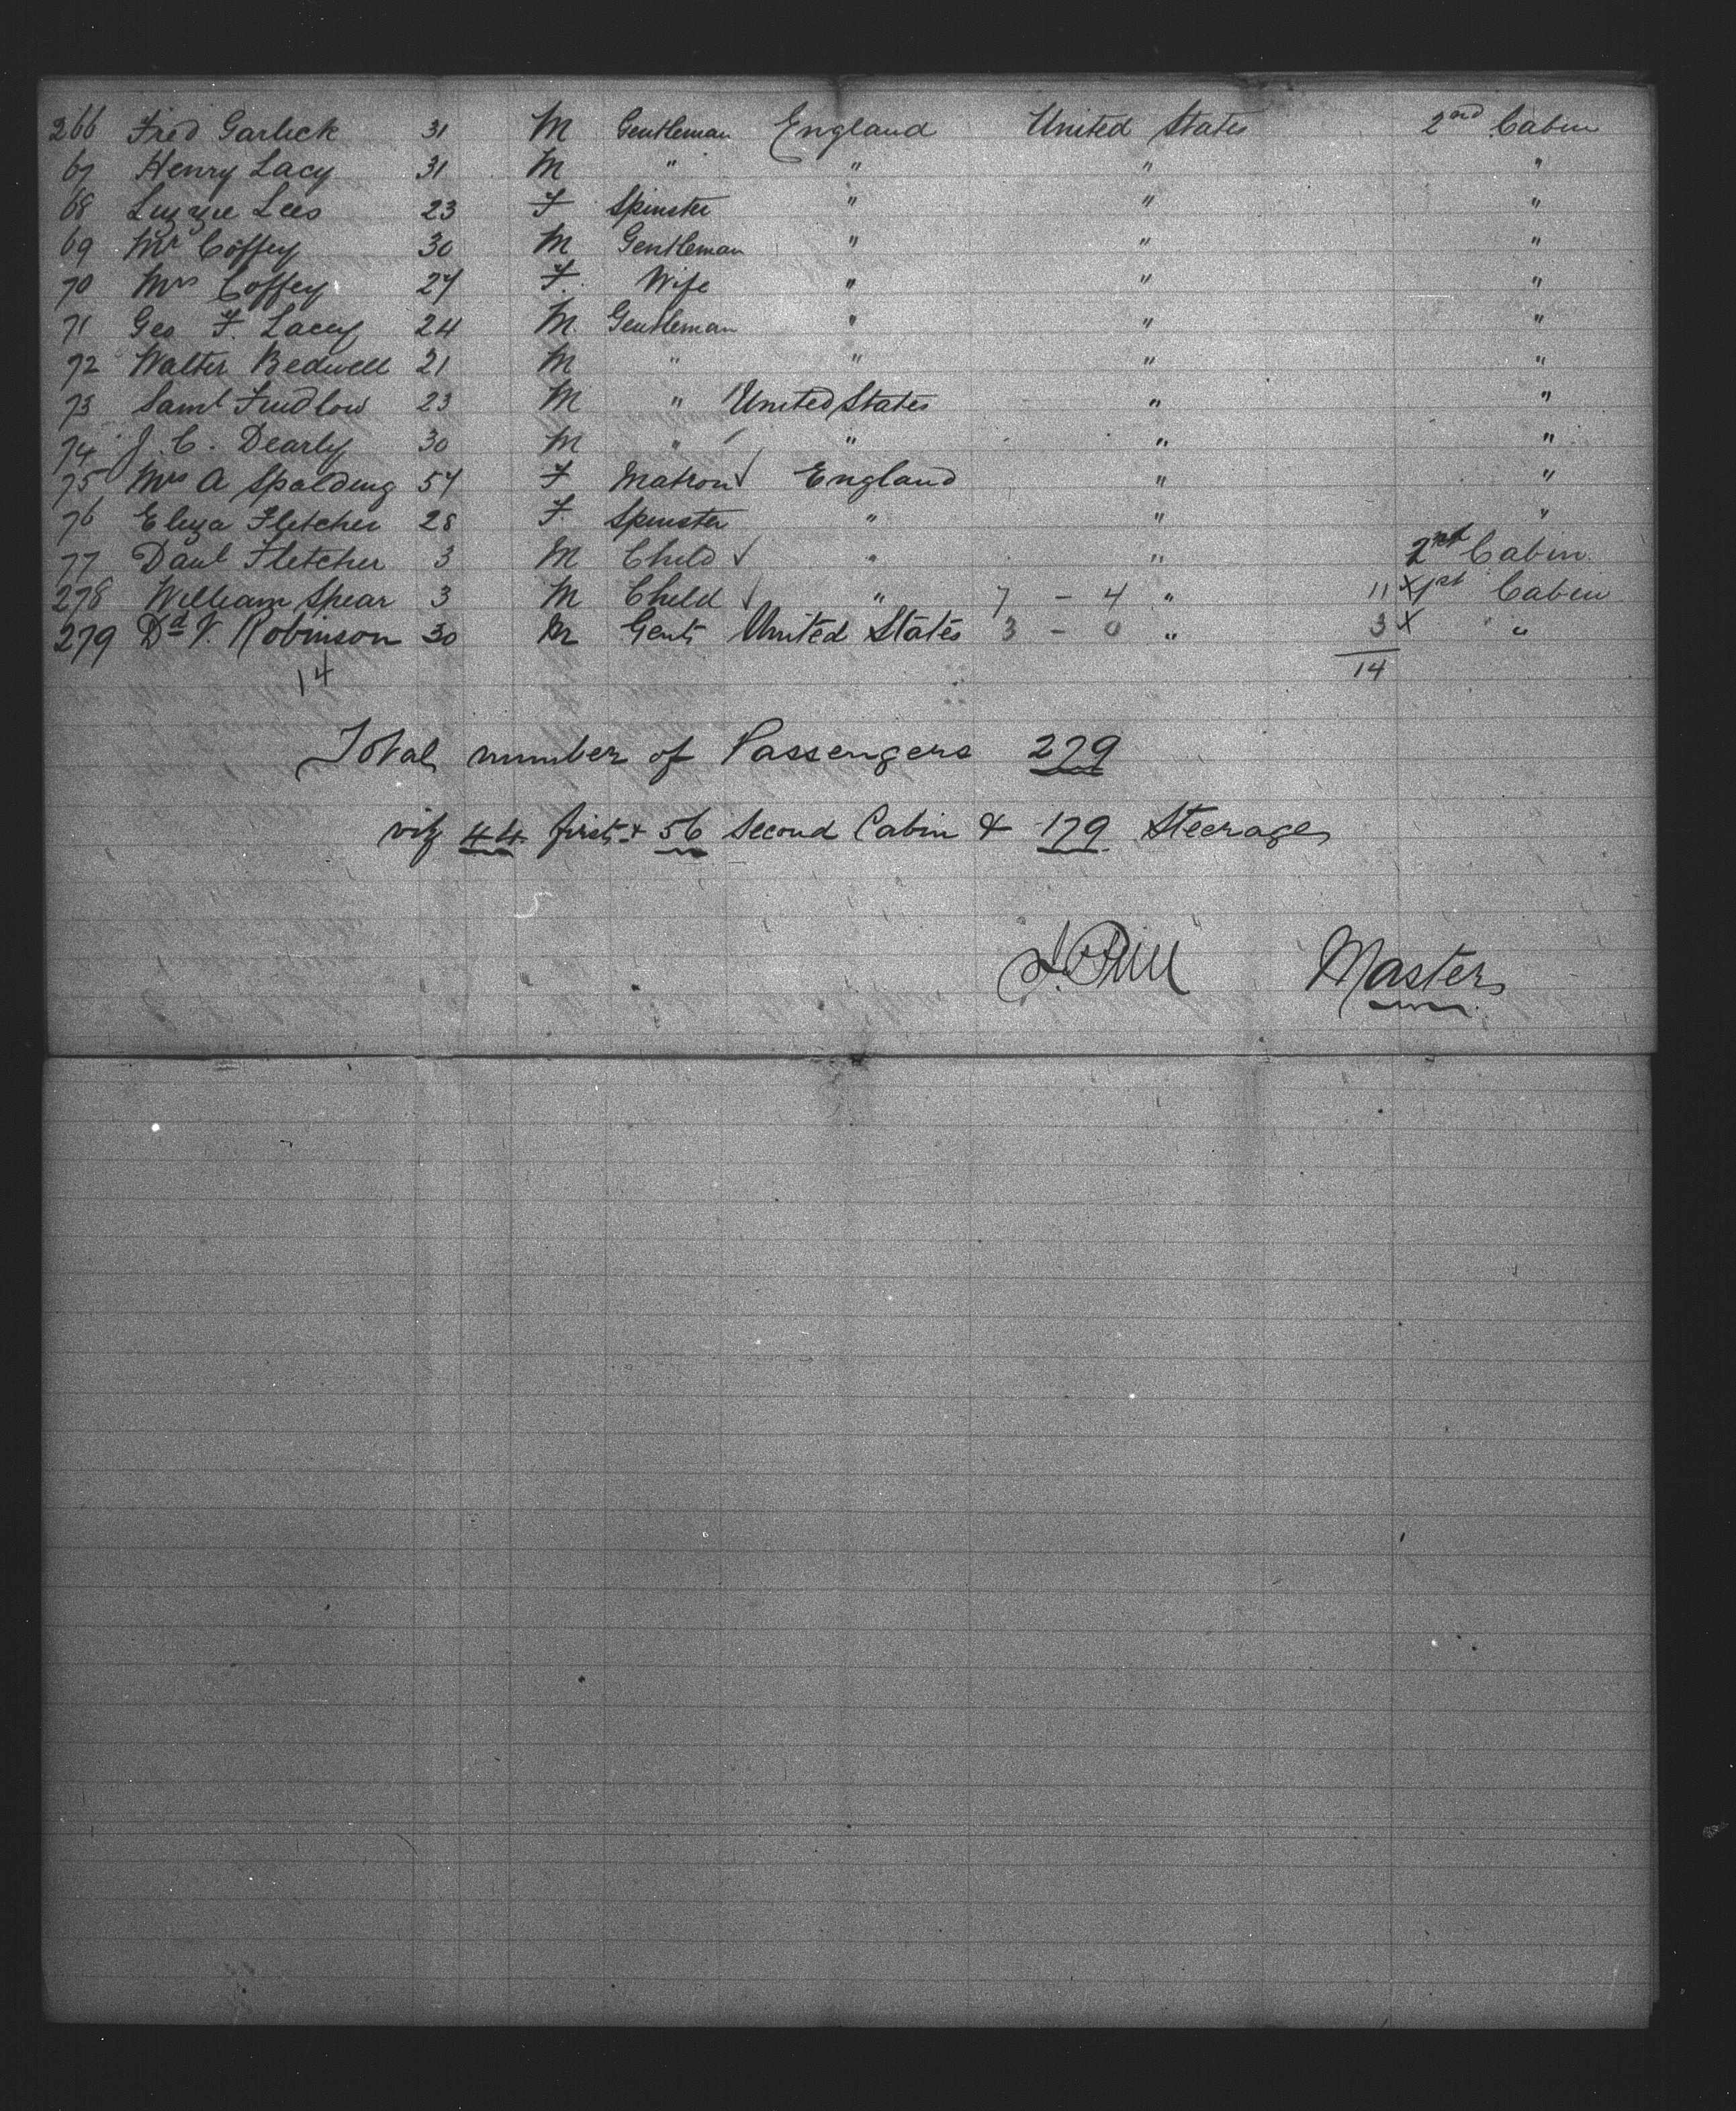 266 Fred Garlick 31 M Gentleman England United States 2nd Cabin
67 Henry Lacy 31 M " " " "
68 Lizzie Lees 23 F Spinster " " "
69 Mr Coffey 30 M Gentleman " " "
70 Mrs Coffey 27 F. Wife " " "
71 Geo F. Lacey 24 M. Gentleman " " "
72 Walter Bedwell 21 M " " " "
73 Saml Ludlow 23 M " United States " "
74 J. C. Dearly 30 M " " " "
75 Mrs A Spalding 54 F Matron England " "
76 Eliza Fletcher 28 F. Spinster " " "
77 Danl Fletcher 3 M Child " " 2nd Cabin.
278 William Spear 3 M Child " 7 - 4 " 11 X 1st Cabin
279 Dd V. Robinson 30 M Gent United States 3 - 0 " 3 X "
14 14
Total number of Passengers 279
viz 44 first & 56 Second Cabin & 179 Steerage
Master